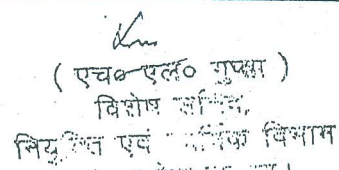 ( एच० एल० गुप्ता )
विशेष सचिव,
नियुक्ति एवं कार्मिक विभाग